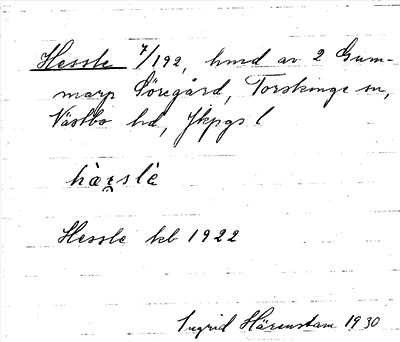 Hessle 7/192, hmd av 2 Gum-
marp Söregård, Torskinge sn,
Västbo hd, Jkpgs l
hès̯lè
Hessle kb 1922
Ingrid Härenstam 1930